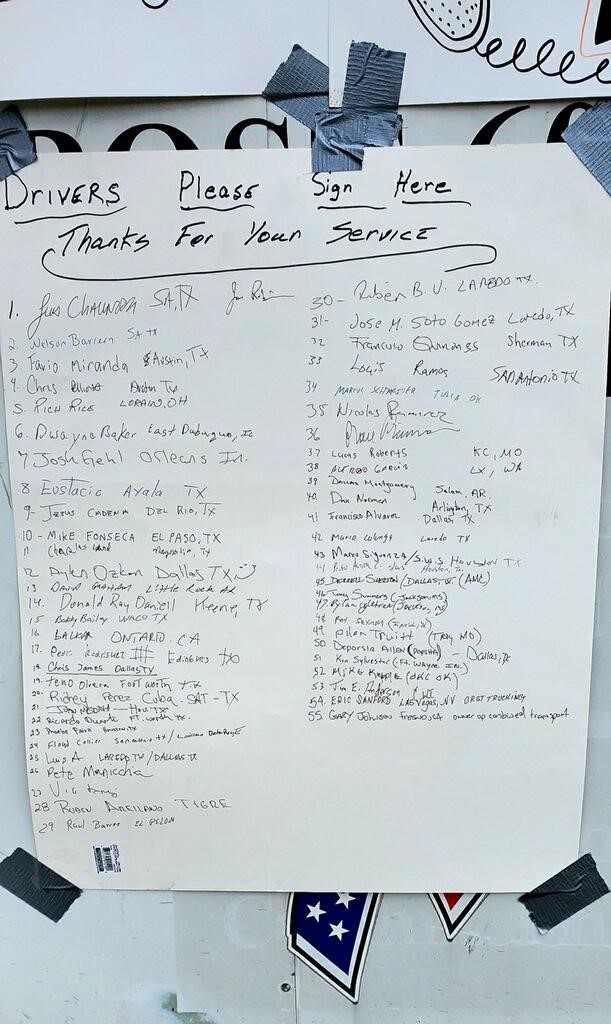 DRIVERS Please Sign Here
Thanks For Your Service
1. Luis SA, TX
2. Nelson Barrera SA TX
3. Favio Miranda Austin, TX
4. Chris Elliott Austin TX
5. RICH RICE LORAIN, OH
6. Dwayne Baker East Dubuque, IL
7 Josh Gehl Orleans In.
8 Eustacio Ayala TX
9- JESUS CADENA DEL RIO, TX
10 - MIKE FONSECA EL PASO, TX
11 Charles Magnolia, TX
12 Aylen Ozkan Dallas TX
13 DAVID GRAHAM LITTLE ROCK AR
14. Donald Ray Daniell Keene, TX
15 Bobby Bailey WACO TX
16 BALKAR ONTARIO. CA
17. Pedro Rodriguez III Edinburg TX
18. Chris James Dallas TX
19. Teno Olvera FORT WORTH TX
20- Richey Perez Cuba - SAT - TX
21- HOU-TX
22 Ricardo Duarte FT. WORTH TX.
23
24 Floyd Collier San Antonio TX /
25 Luis A LAREDO TX / DALLAS TX
26 Pete Manicchia
27 Vic
28 RUBEN ARELLANO TIGRE
29 Raul Barron EL PELON
30- Rubén B. V. LAREDO TX.
31- Jose M. Soto Gomez Laredo, TX
32 Francisco Sherman TX
33 Louis Ramos SAN ANTONIO TX
34 MARCUS TULSA OK
35 Nicolas Ramirez
36
37 Lucas Roberts KC, MO
38 ALFREDO GARCIA LX, WA
39 Dallas Montgomery Salem, AR.
40. Dan Norman Arlington, TX
41 Francisco Alvarez Dallas TX
42 Mario Laredo TX
43 Marco Siguenza / S.W.S Houston TX
44 Houston, Tx
45 DERRELL / DALLAS, TX. (AMC)
46 Tony Summers (JACKSON, MS)
47. (Jackson, MS)
48
49 Allen Truitt (TROY, MO)
50 Deporsia Allen (POPSHA) - Dallas, Tx
51 Ken Sylvester (FT. WAYNE IN.)
52 MIKE (OKC OK)
53 Jim E. Anderson WI
54. ERIC SANFORD LAS Vegas, NV ORBT TRUCKING
55. GARY Johnson Fresno, CA owner op combined transport